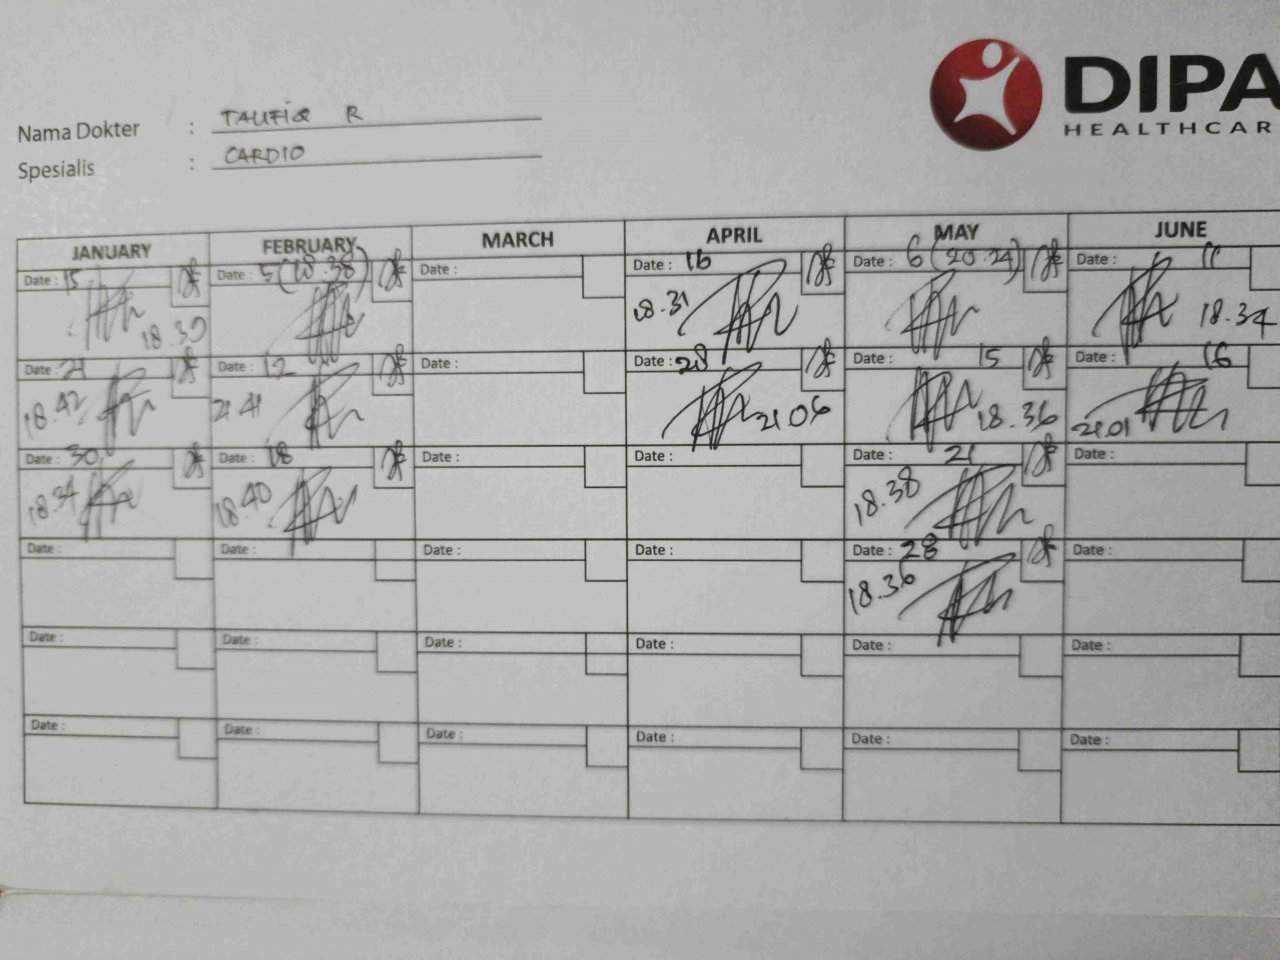 DIPA
HEALTHCAR
Nama Dokter : TAUFIQ R
Spesialis : CARDIO
JANUARY FEBRUARY MARCH APRIL MAY JUNE
Date : 15 Date : 5 (18.38) Date : Date : 16 Date : 6 (20.24) Date : 11
18.39 18.31 18.34
Date : 21 Date : 12 Date : Date : 28 Date : 15 Date : 16
18.42 21.41 21.06 18.36 21.01
Date : 30 Date : 18 Date : Date : Date : 21 Date :
18.34 18.40 18.38
Date : Date : Date : Date : Date : 28 Date :
18.36
Date : Date : Date : Date : Date : Date :
Date : Date : Date : Date : Date : Date :